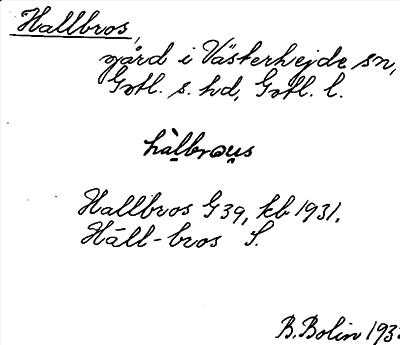 Hallbros,
gård i Västerhejde sn,
Gotl. s. hd, Gotl. l.
hàlbrəu̯s
Hallbros G 39, kb 1931.
Häll-bros S.
B. Bolin 193